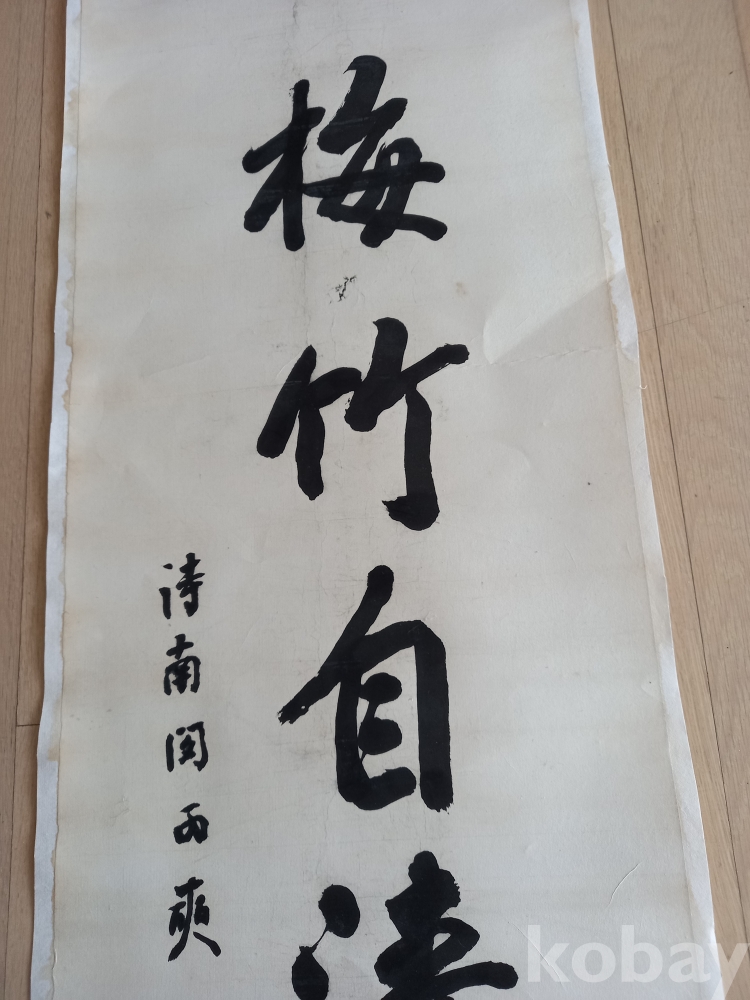 梅竹自清
詩南閔丙奭
kobay